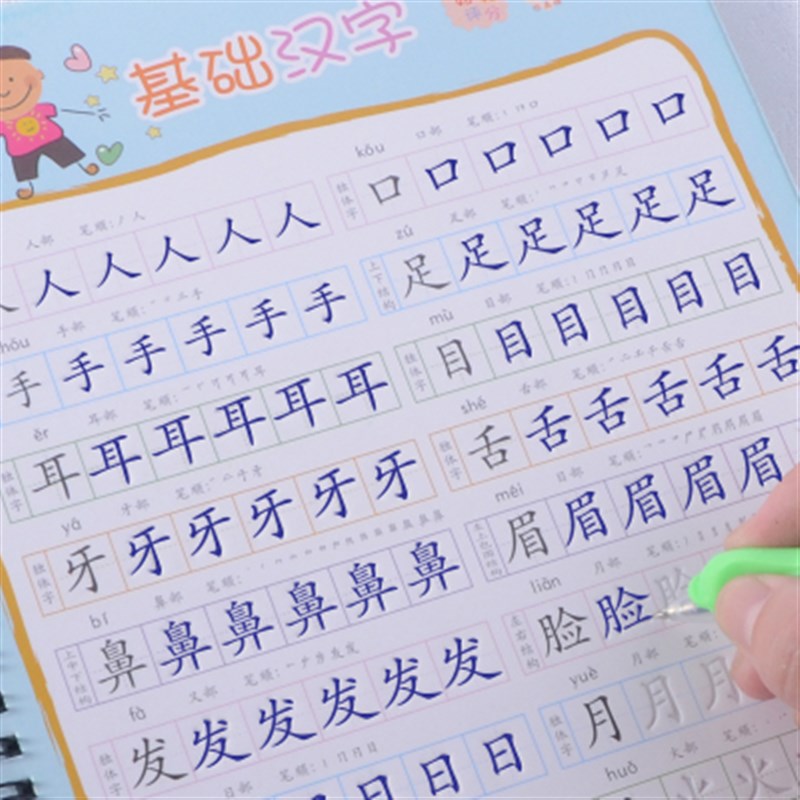 基础汉字
kǒu 口部 笔顺:
独体字 口 口 口 口 口 口
人部 笔顺:ノ人
人 人 人 人 人 人
zú 足部 笔顺:
上下结构 足 足 足 足 足 足
手部 笔顺:
手 手 手 手 手 手
mù 目部 笔顺:
独体字 目 目 目 目 目 目
ěr 耳部 笔顺:
独体字 耳 耳 耳 耳 耳 耳
shé 舌部 笔顺:
独体字 舌 舌 舌 舌 舌 舌
yá 牙部 笔顺:
独体字 牙 牙 牙 牙 牙 牙
méi 目部 笔顺:
眉 眉 眉 眉 眉
bí 鼻部 笔顺:
上中下结构 鼻 鼻 鼻 鼻 鼻 鼻
liǎn 月部 笔顺:
左右结构 脸 脸 脸
fà 又部 笔顺:
独体字 发 发 发 发 发 发
yuè 月部 笔顺:
独体字 月 月 月
日部 笔顺:
日 日 日
huǒ 火部 笔顺:
火 火